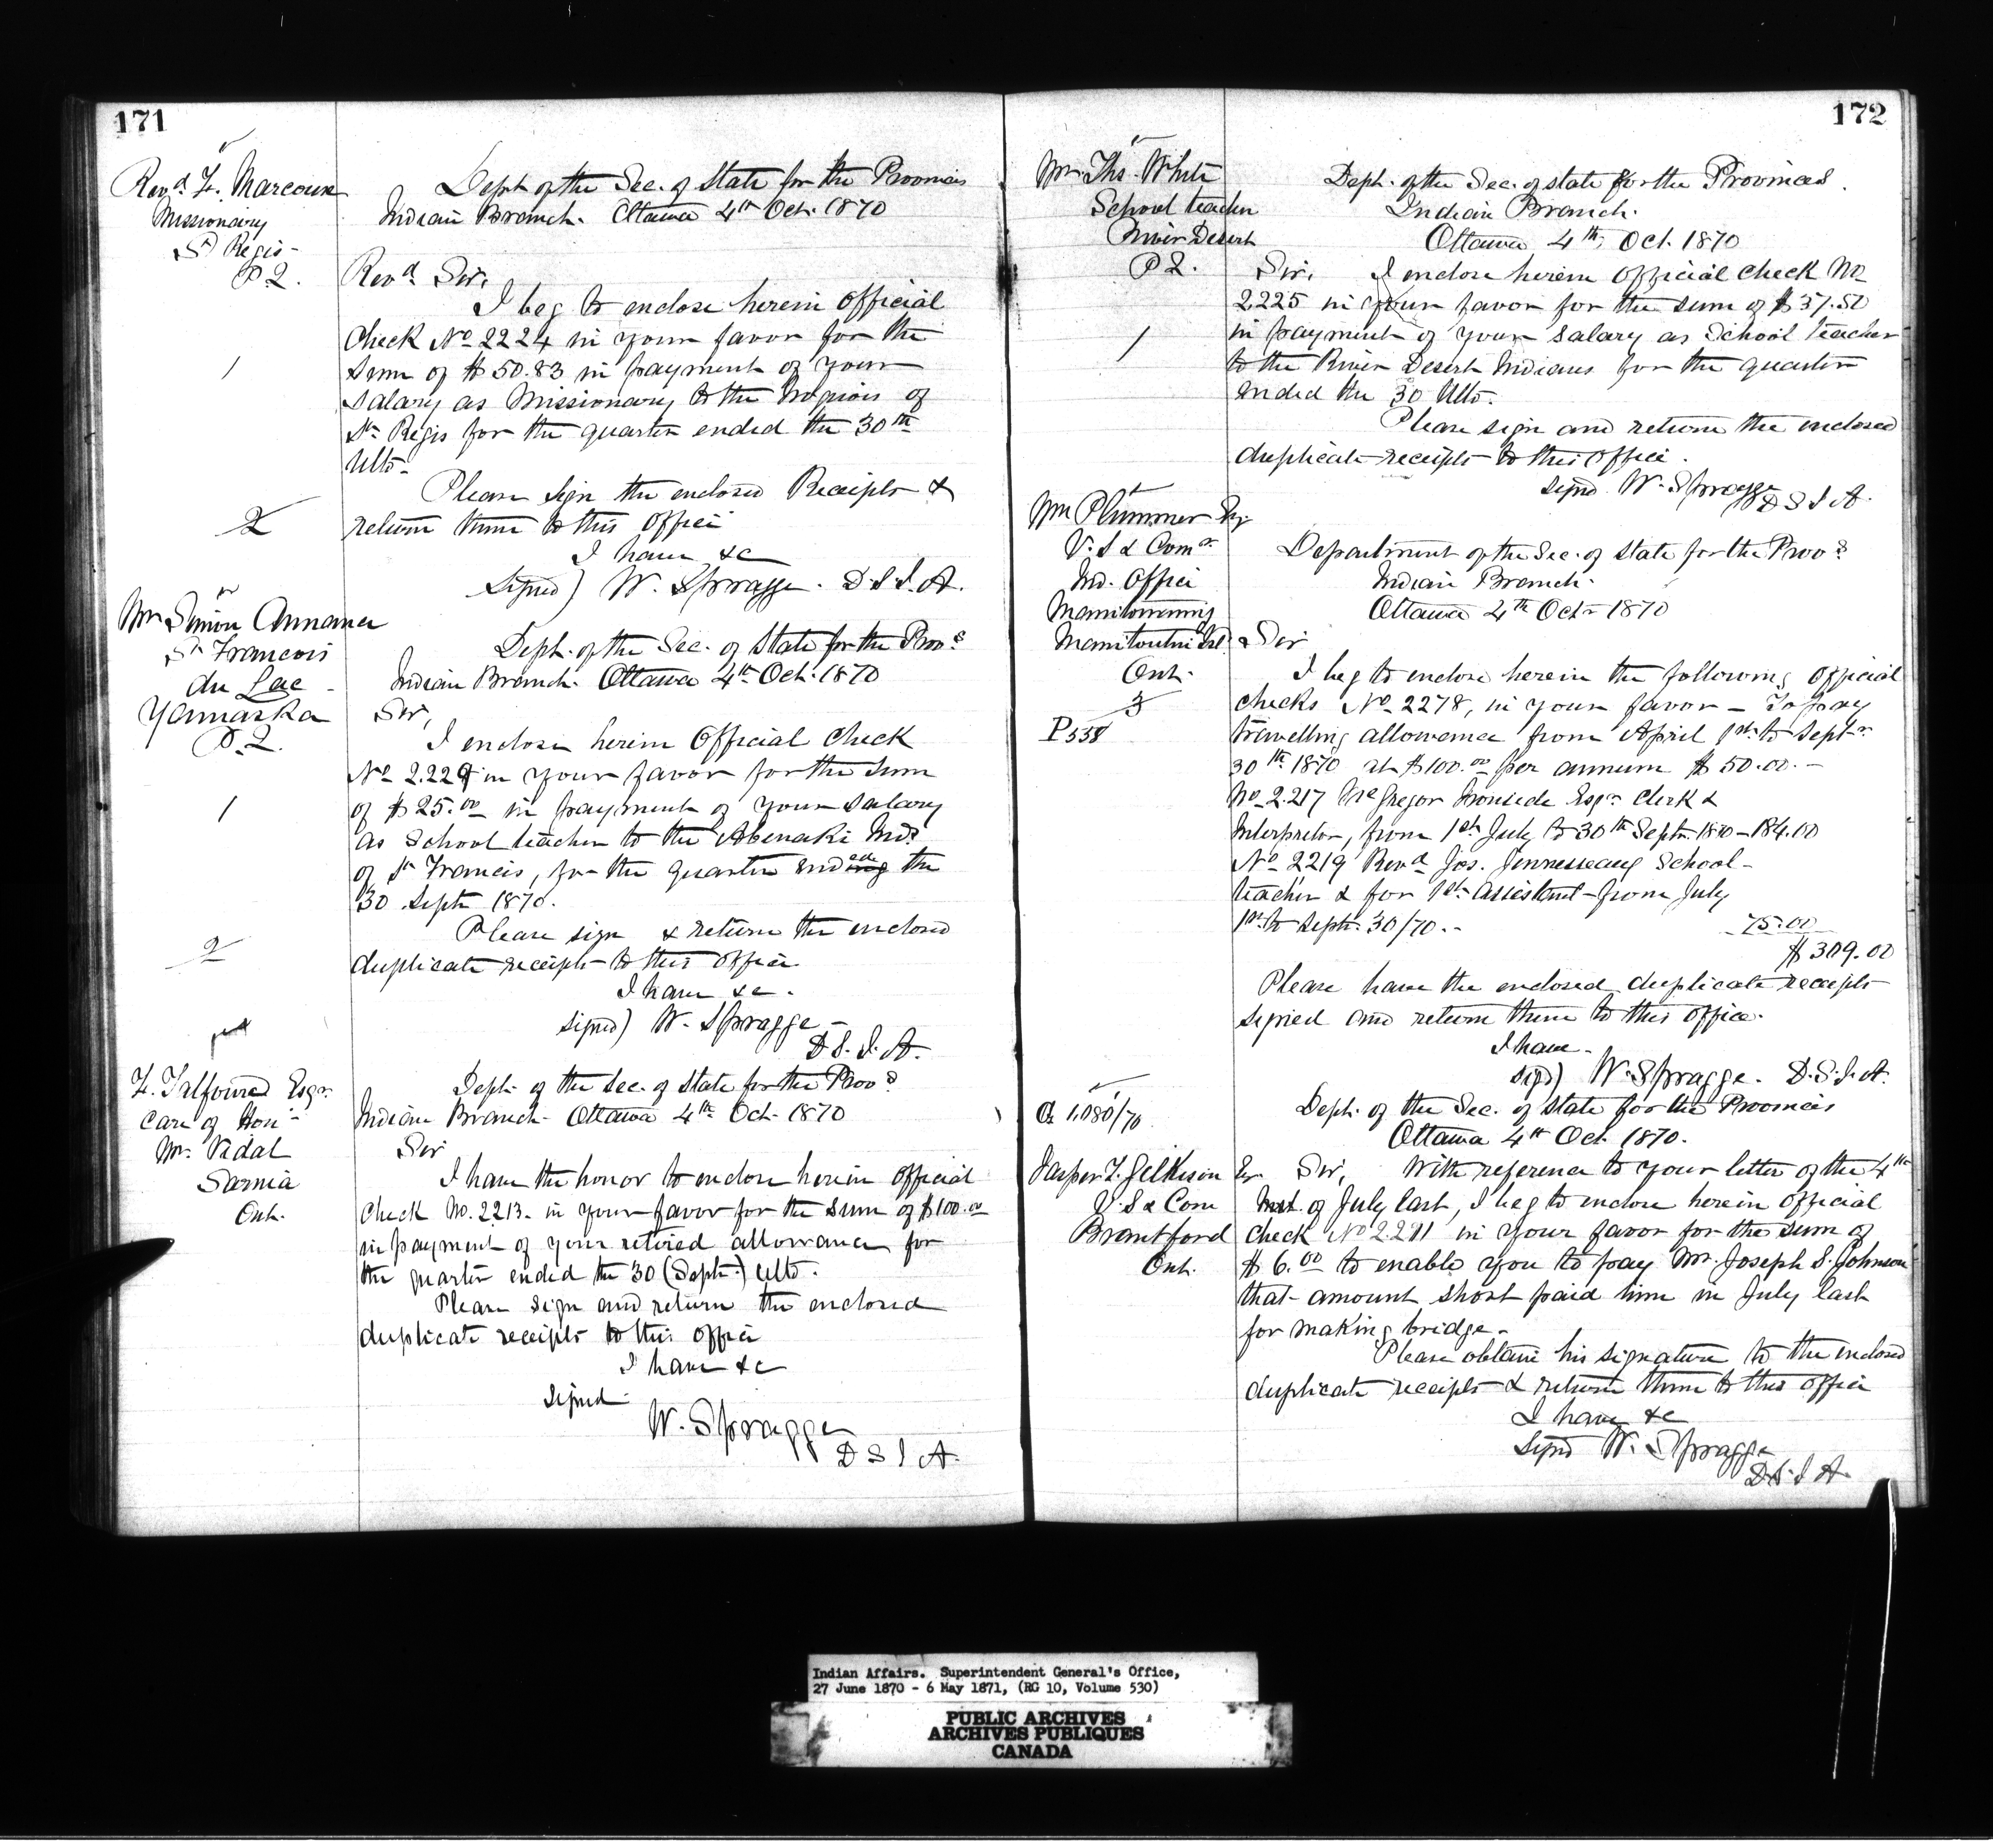 171
Revd. F. Marcoux
Missionary
St Regis
P.Q.
Dept. of the Sec. of State for the Provinces
Indian Branch. Ottawa 4th Oct. 1870
Revd. Sir,
I beg to enclose herein Official
Check No 2224 in your favor for the
1
Sum of $50.83 in payment of your
Salary as Missionary to the Iroquois of
St. Regis for the quarter ended the 30th
Ulto.
Please sign the enclosed Receipts &
2
return them to this Office
I have &c
Signed) W. Spragge. D.S.I.A.
Mr Simon Annance
St Francois
du Lac
Yamaska
P.Q.
Dept. of the Sec. of State for the Provs
Indian Branch. Ottawa 4th Oct. 1870
Sir,
I enclose herein Official Check
No 2.229 in your favor for the sum
1
of $25.00 in payment of your salary
as School teacher to the Abenaki Inds
of St Francis, for the quarter ending ed the
30 Sept 1870.
Please sign & return the enclosed
2
duplicate receipts to this office
I have &c.
signed) W. Spragge
D.S.I.A.
F. Talfourd Esqr.
Care of Hon
Mr. Vidal
Sarnia
Ont.
Dept. of the Sec. of State for the Provs
Indian Branch Ottawa 4th Oct 1870
Sir
I have the honor to enclose herein Official
Check No. 2213. in your favor for the sum of $100.00
in payment of your retired allowance for
the quarter ended the 30 (Septr.) Ulto.
Please sign and return the enclosed
duplicate receipts to this office
I have &c
signed
W. Spragge
D S I A.
172
Mr. Ths. White
School teacher
River Desert
P Q.
Dept. of the Sec. of state for the Provinces.
Indian Branch.
Ottawa 4th Oct. 1870
Sir, I enclose herein Official Check No
2225 in your favor for the sum of $37.50
1
in payment of your salary as School teacher
to the River Desert Indians for the quarter
ended the 30 Ulto.
Please sign and return the enclosed
duplicate receipts to this office.
signd W. Spragge
D S I A.
Wm Plummer Esq
V. S & Comr.
Ind. Office
Manitowaning
Manitoulin Isl.
Ont.
3
P558
Department of the Sec. of State for the Provs
Indian Branch.
Ottawa 4th Octr 1870
Sir
I beg to enclose herein the following Official
checks No 2278, in your favor – To pay
travelling allowance from April 1st to Septr.
30th 1870 at $100.00 per annum $50.00.–
No 2.217 McGregor Ironside Esqr Clerk &
Interpreter, from 1st July to 30th Septr. 1870–184.00
No 2219 Revd Jos. Jennesseaux School-
teacher & for 1st Assistant from July
1st to Sept. 30/70.– 75.00
$309.00
Please have the enclosed duplicate receipts
signed and return them to this office.
I have.
sigd) W. Spragge. D.S.I.A.
1.080/70
Jasper T. Gilkison Esqr
V. S & Com
Brantford
Ont.
Dept. of the Sec. of State for the Provinces
Ottawa 4th Oct 1870.
Sir, With reference to your letter of the 4th
Inst. of July last, I beg to enclose herein Official
Check No 2.211 in your favor for the sum of
$6.00 to enable you to pay Mr. Joseph S. Johnson
that amount short paid him in July last
for making bridge.
Please obtain his signature to the enclosed
duplicate receipts & return them to this office
I have &c
signd W. Spragge
D.S.I A.
Indian Affairs. Superintendent General's Office,
27 June 1870 - 6 May 1871, (RG 10, Volume 530)
PUBLIC ARCHIVES
ARCHIVES PUBLIQUES
CANADA